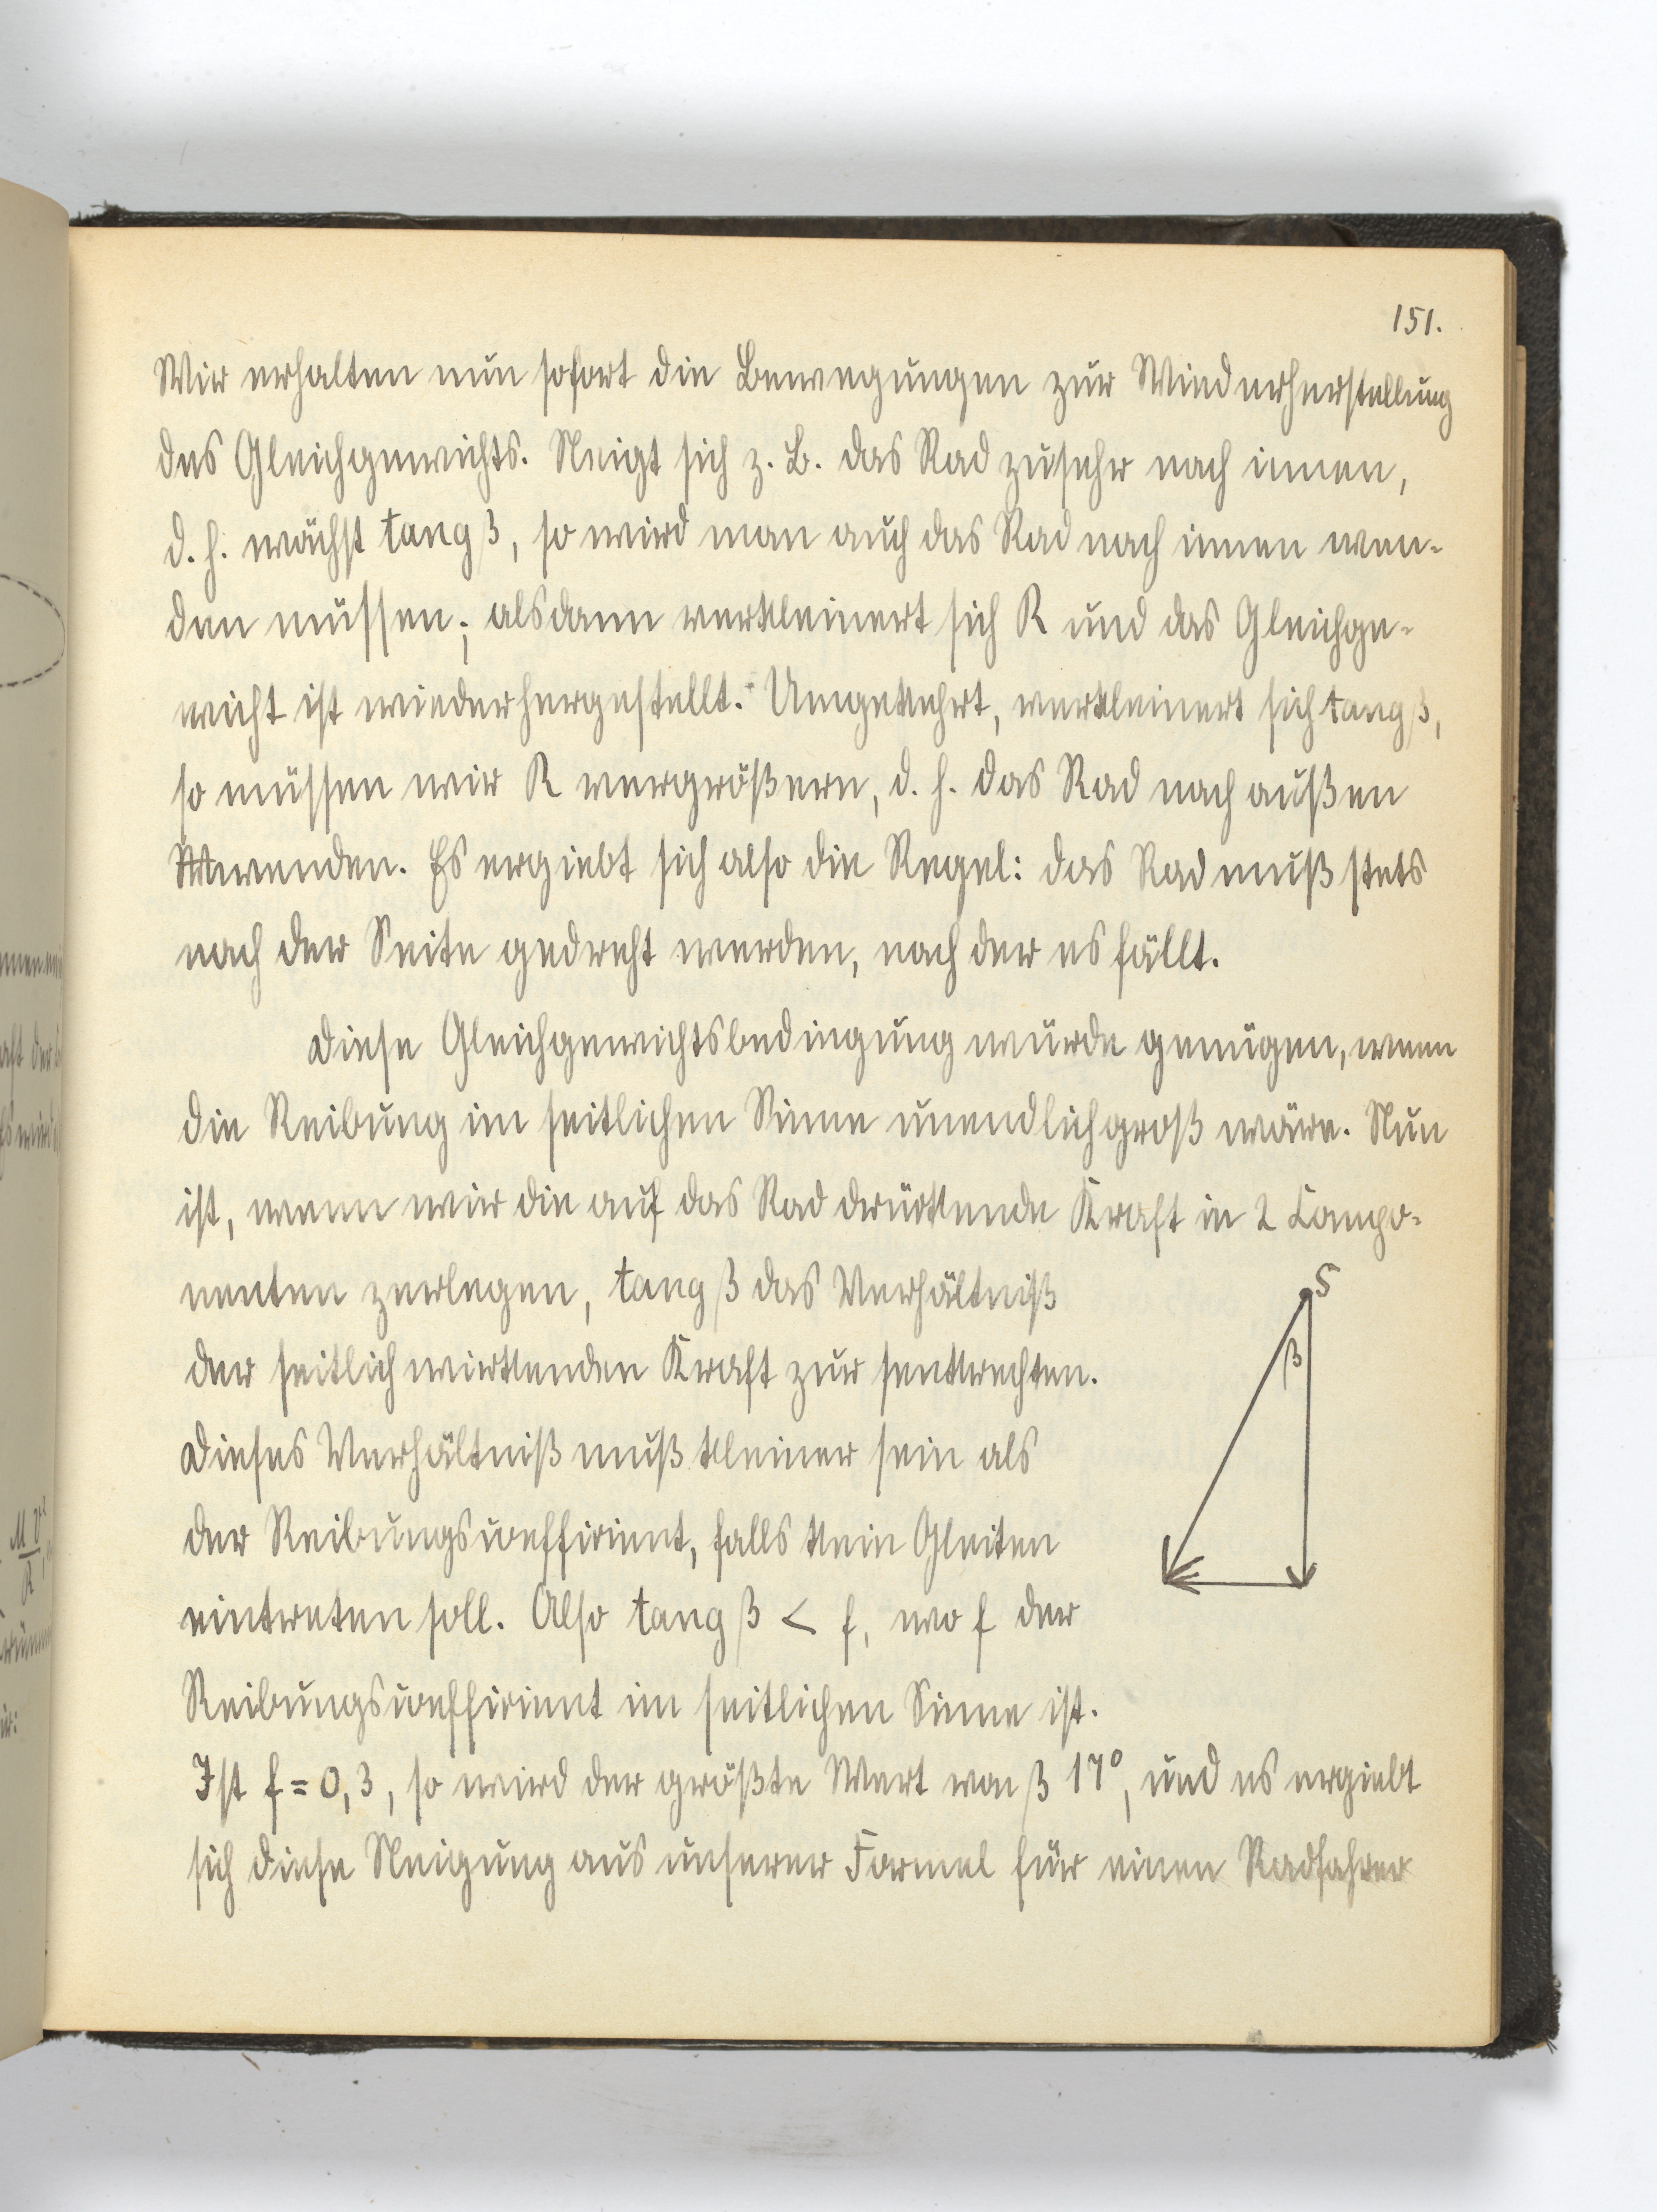 151.
Wir erhalten nun sofort die Bewegungen zur Wiederherstellung
des Gleichgewichts. Neigt sich z. B. das Rad zusehr nach innen,
d. h. wächst tang β, so wird man auch das Rad nach innen wen-
den müssen; alsdann verkleinert sich R und das Gleichge-
wicht ist wiederhergestellt. Umgekehrt, verkleinert sich tang β,
so müssen wir R vergrößern, d. h. das Rad nach außen
wenden. Es ergiebt sich also die Regel: das Rad muß stets
nach der Seite gedreht werden, nach der es fällt.
Diese Gleichgewichtsbedingung würde genügen, wenn
die Reibung im seitlichen Sinne unendlich groß wäre. Nun
ist, wenn wir die auf das Rad drückende Kraft in 2 Compo-
nenten zerlegen, tang β das Verhältniß
der seitlich wirkenden Kraft zur senkrechten.
Dieses Verhältniß muß kleiner sein als
der Reibungscoefficient, falls kein Gleiten
eintreten soll. Also tang β < f, wo f der
Reibungscoefficient im seitlichen Sinne ist.
Ist f = 0,3, so wird der größte Wert von β 17°, und es ergiebt
sich diese Neigung aus unserer Formel für einen Radfahrer
S
β